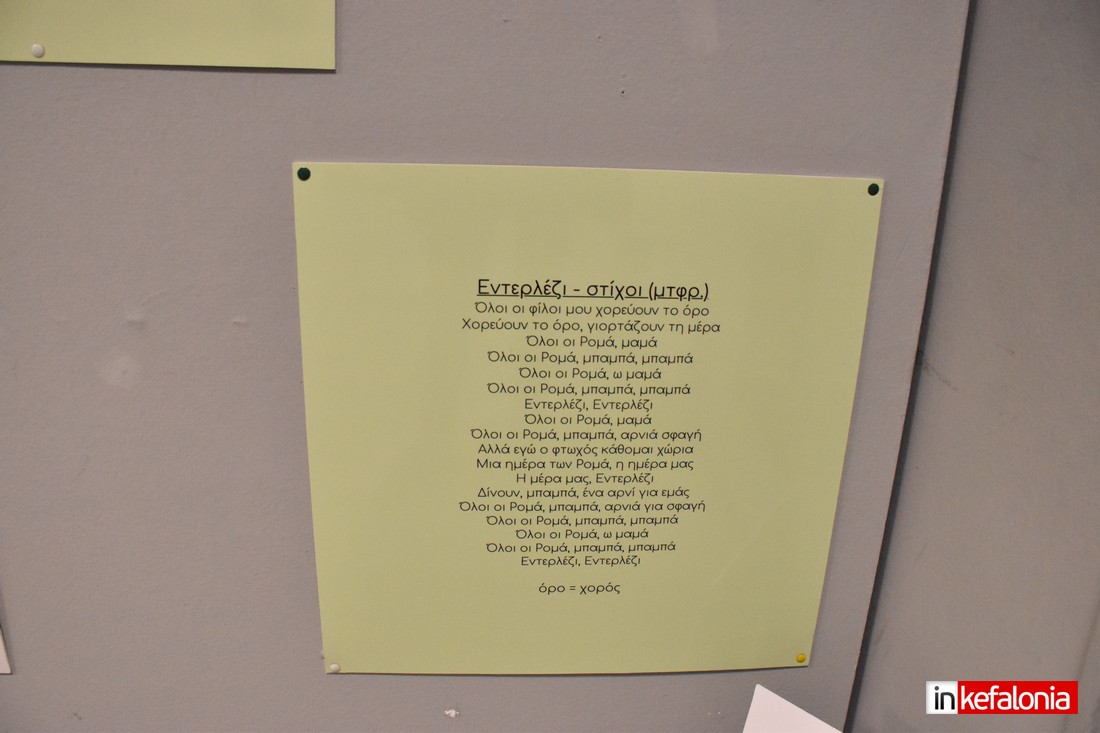 Εντερλέζι - στίχοι (μτφρ.)
Όλοι οι φίλοι μου χορεύουν το όρο
Χορεύουν το όρο, γιορτάζουν τη μέρα
Όλοι οι Ρομά, μαμά
Όλοι οι Ρομά, μπαμπά, μπαμπά
Όλοι οι Ρομά, ω μαμά
Όλοι οι Ρομά, μπαμπά, μπαμπά
Εντερλέζι, Εντερλέζι
Όλοι οι Ρομά, μαμά
Όλοι οι Ρομά, μπαμπά, αρνιά σφαγή
Αλλά εγώ ο φτωχός κάθομαι χώρια
Μια ημέρα των Ρομά, η ημέρα μας
Η μέρα μας, Εντερλέζι
Δίνουν, μπαμπά, ένα αρνί για εμάς
Όλοι οι Ρομά, μπαμπά, αρνιά για σφαγή
Όλοι οι Ρομά, μπαμπά, μπαμπά
Όλοι οι Ρομά, ω μαμά
Όλοι οι Ρομά, μπαμπά, μπαμπά
Εντερλέζι, Εντερλέζι
όρο = χορός
inkefalonia